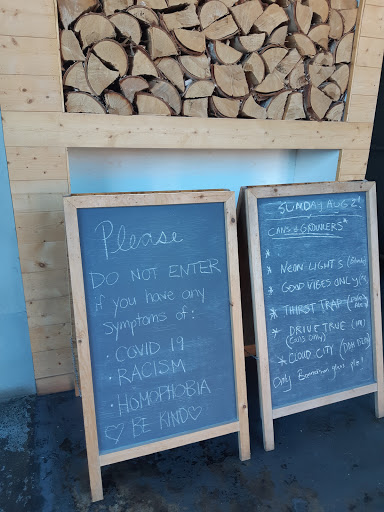 Please
DO NOT ENTER
if you have any
symptoms of:
· COVID 19
· RACISM
· HOMOPHOBIA
♡ BE KIND ♡
SUNDAY AUG 2!
CANS & GROWLERS*
* NEON LIGHTS
* GOOD VIBES ONLY
* THIRST TRAP
* DRIVE TRUE (IPA)
(CANS ONLY)
* CLOUD CITY
Only Bannerman glass plz!